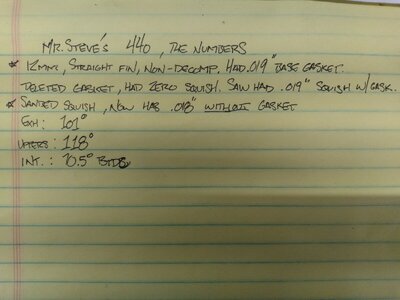 Mr. Steve's 440, The Numbers
* 12mm, Straight fin, non-decomp. Had .019" base gasket.
Deleted gasket, had zero squish. Saw had .019" squish w/ gask.
* Santed squish, now has .018" without gasket
Exh: 101°
Uppers: 118°
Int.: 70.5° BTDC